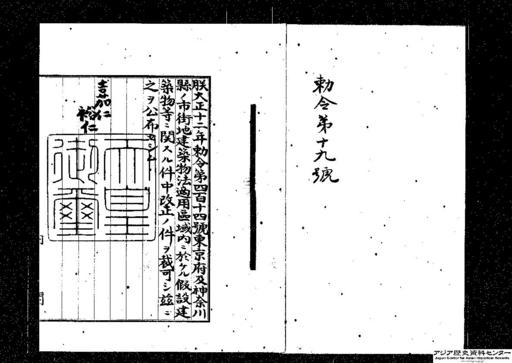 勅令第十九號
朕大正十二年勅令第四百十四號東京府及神奈川
縣ノ市街地建築物法適用區域内ニ於ケル假設建
築物等ニ関スル件中改正ノ件ヲ裁可シ茲ニ
之ヲ公布セシム
嘉仁
裕仁
天皇
御璽
アジア歴史資料センター
Japan Center for Asian Historical Records